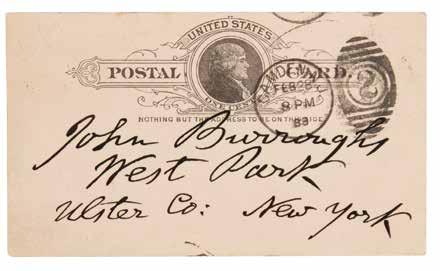 UNITED STATES
POSTAL CARD.
ONE CENT
NOTHING BUT THE ADDRESS TO BE ON THIS SIDE.
CAMDEN N.J.
FEB 28
8 PM
88
2
John Burroughs
West Park
Ulster Co: New York